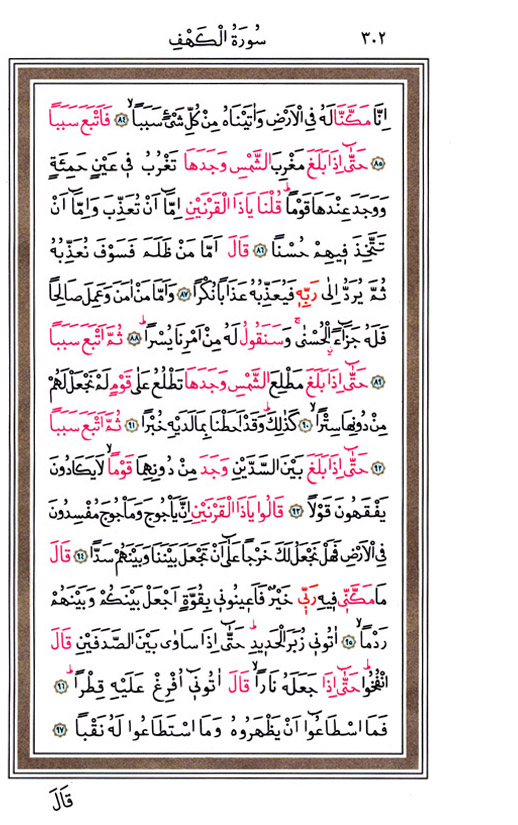 ٣٠٢ سُورَةُ الْكَهْفِ
اِنَّا مَكَّنَّا لَهُ فِي الْاَرْضِ وَاٰتَيْنَاهُ مِنْ كُلِّ شَيْءٍ سَبَبًاۙ ٨٤ فَاَتْبَعَ سَبَبًا
٨٥ حَتّٰٓى اِذَا بَلَغَ مَغْرِبَ الشَّمْسِ وَجَدَهَا تَغْرُبُ فٖي عَيْنٍ حَمِئَةٍ
وَوَجَدَ عِنْدَهَا قَوْمًاۜ قُلْنَا يَاذَا الْقَرْنَيْنِ اِمَّٓا اَنْ تُعَذِّبَ وَاِمَّٓا اَنْ
تَتَّخِذَ فٖيهِمْ حُسْنًا ٨٦ قَالَ اَمَّا مَنْ ظَلَمَ فَسَوْفَ نُعَذِّبُهُ
ثُمَّ يُرَدُّ اِلٰى رَبِّهٖ فَيُعَذِّبُهُ عَذَابًا نُكْرًا ٨٧ وَاَمَّا مَنْ اٰمَنَ وَعَمِلَ صَالِحًا
فَلَهُ جَزَٓاءًۨ الْحُسْنٰىۚ وَسَنَقُولُ لَهُ مِنْ اَمْرِنَا يُسْرًاۜ ٨٨ ثُمَّ اَتْبَعَ سَبَبًا
٨٩ حَتّٰٓى اِذَا بَلَغَ مَطْلِعَ الشَّمْسِ وَجَدَهَا تَطْلُعُ عَلٰى قَوْمٍ لَمْ نَجْعَلْ لَهُمْ
مِنْ دُونِهَا سِتْرًاۙ ٩٠ كَذٰلِكَۜ وَقَدْ اَحَطْنَا بِمَا لَدَيْهِ خُبْرًا ٩١ ثُمَّ اَتْبَعَ سَبَبًا
٩٢ حَتّٰٓى اِذَا بَلَغَ بَيْنَ السَّدَّيْنِ وَجَدَ مِنْ دُونِهِمَا قَوْمًاۙ لَا يَكَادُونَ
يَفْقَهُونَ قَوْلًا ٩٣ قَالُوا يَاذَا الْقَرْنَيْنِ اِنَّ يَأْجُوجَ وَمَأْجُوجَ مُفْسِدُونَ
فِي الْاَرْضِ فَهَلْ نَجْعَلُ لَكَ خَرْجًا عَلٰٓى اَنْ تَجْعَلَ بَيْنَنَا وَبَيْنَهُمْ سَدًّا ٩٤ قَالَ
مَا مَكَّنّٖي فٖيهِ رَبّٖي خَيْرٌ فَاَعٖينُونٖي بِقُوَّةٍ اَجْعَلْ بَيْنَكُمْ وَبَيْنَهُمْ
رَدْمًاۙ ٩٥ اٰتُونٖي زُبَرَ الْحَدٖيدِۜ حَتّٰٓى اِذَا سَاوٰى بَيْنَ الصَّدَفَيْنِ قَالَ
انْفُخُواۜ حَتّٰٓى اِذَا جَعَلَهُ نَارًاۙ قَالَ اٰتُونٖٓي اُفْرِغْ عَلَيْهِ قِطْرًاۜ ٩٦
فَمَا اسْطَاعُٓوا اَنْ يَظْهَرُوهُ وَمَا اسْتَطَاعُوا لَهُ نَقْبًا ٩٧
قَالَ